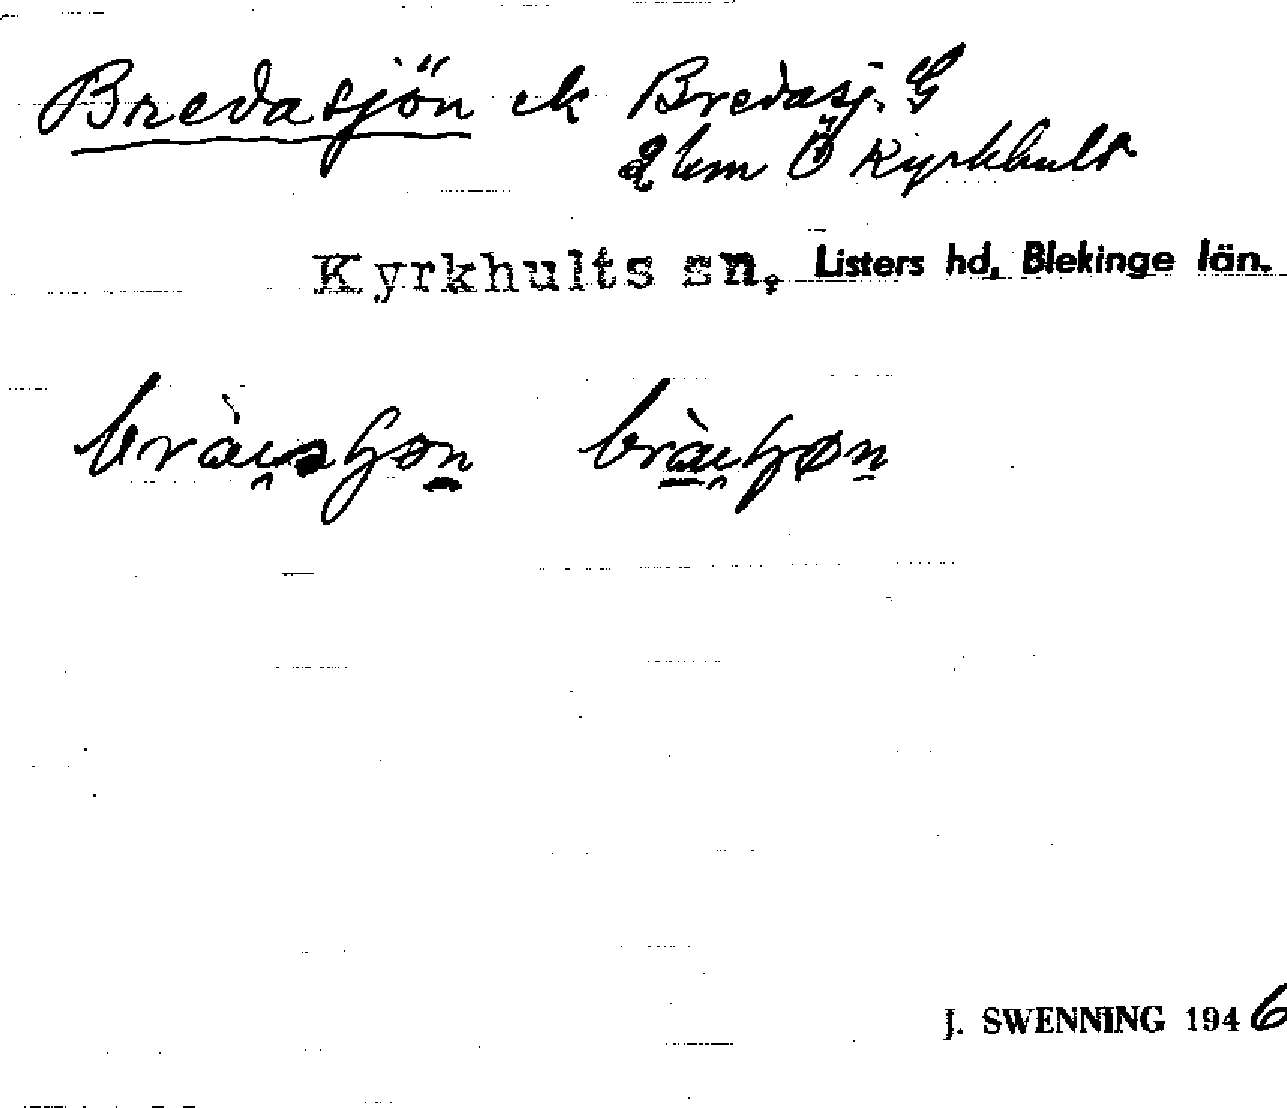 Bredasjön ek Bredasj. G
2 km Ö Kyrkhult
Kyrkhults sn, Listers hd, Blekinge län.
J. SWENNING 1946